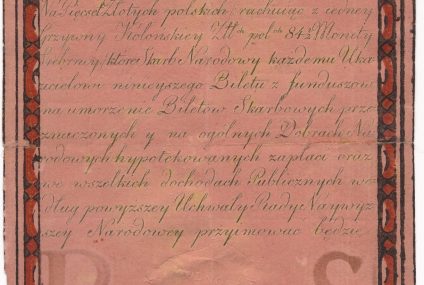 Na Pięćset Złotych polskich rachuiąc z iedney
Grzywny Kolonskiey Złł.ch pol.ch 84½ Monety
Srebrney, którą Skarb Narodowy każdemu Uka-
zicielowi ninieyszego Biletu z funduszow
na umorzenie Biletow Skarbowych prze-
znaczonych y na ogolnych Dobrach Na-
rodowych hypotekowanych zapłaci oraz
we wszelkich dochodach Publicznych we-
dług powyższey Uchwały Rady Naywyż-
szey Narodowey przyimować będzie